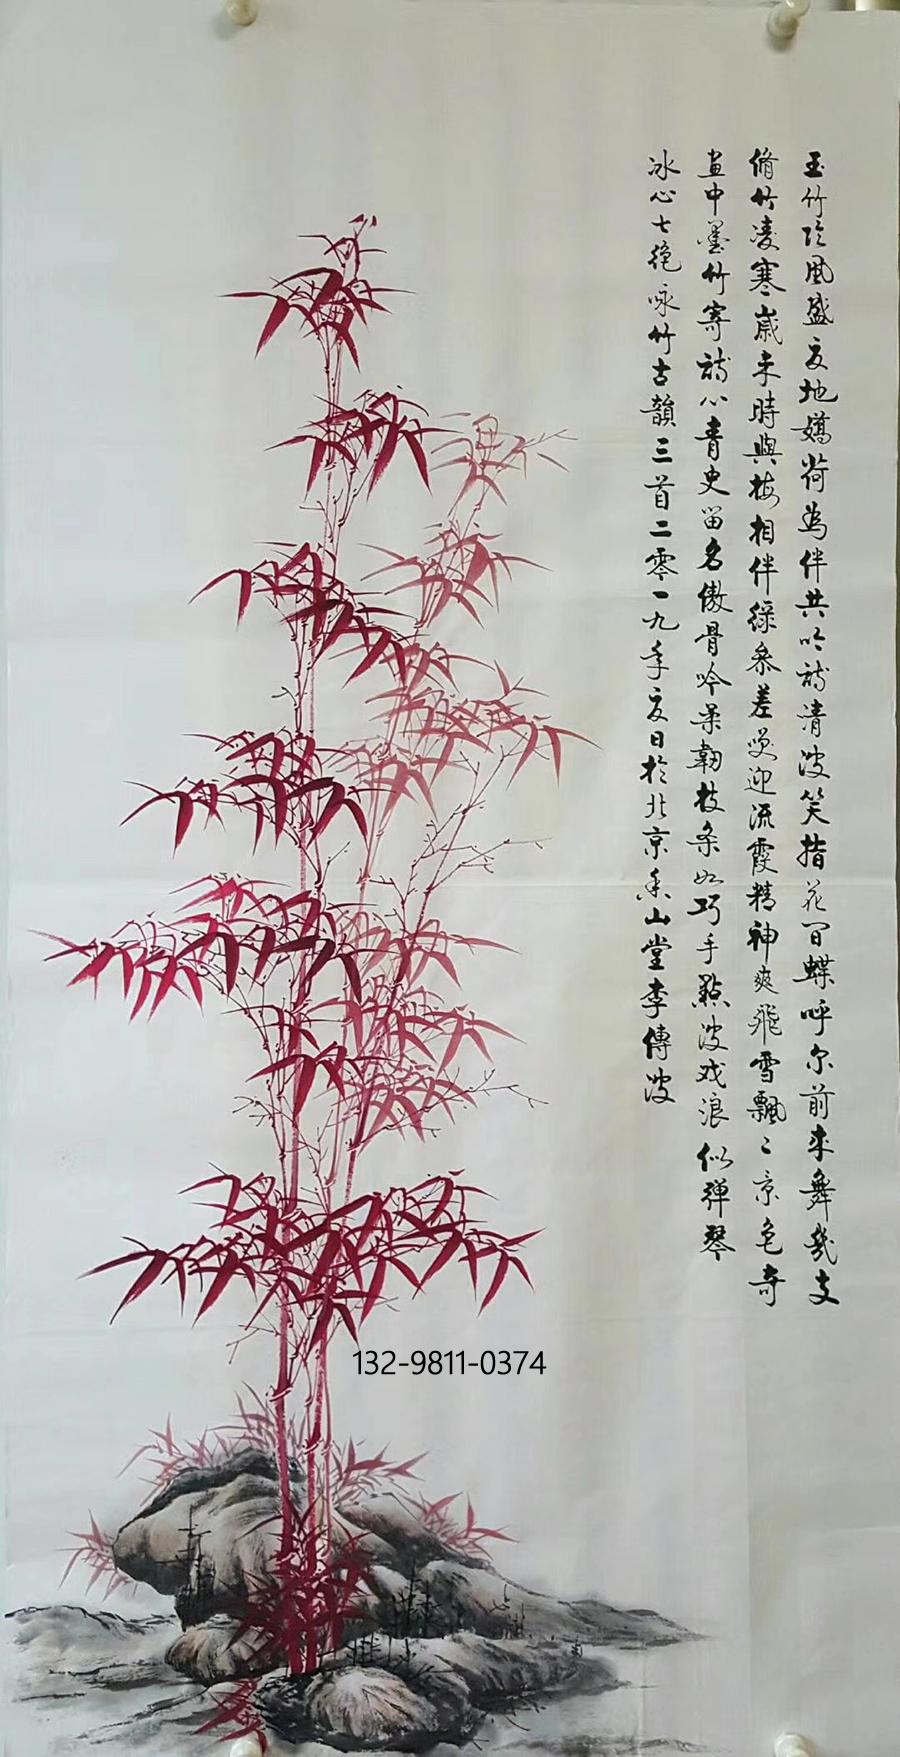 玉竹臨風盛夏地嬌荷為伴共吟詩清波笑指花間蝶呼尔前來舞幾支
脩竹凌寒歲末時與梅相伴綠參差喚迎流霞精神爽飛雪飄〻景色奇
畫中墨竹寄詩心青史留名傲骨吟柔韌枝条如巧手點波戏浪似弹琴
冰心七絕咏竹古韻三首二零一九年夏日於北京香山堂李傳波
132-9811-0374